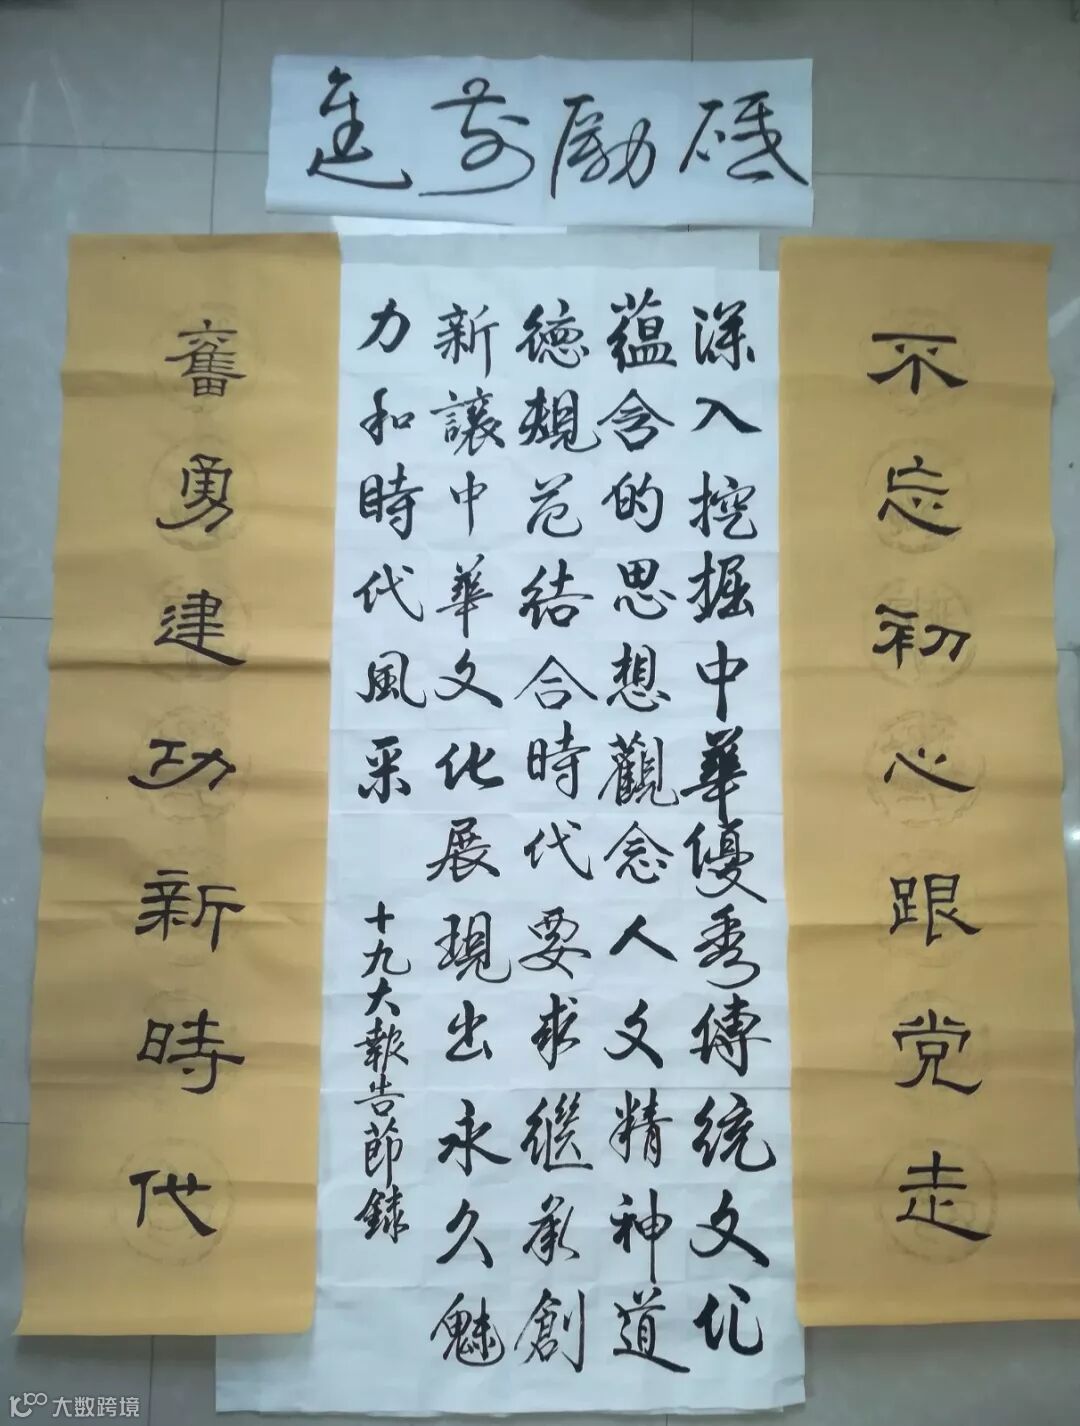 砥励前進
不忘初心跟党走
深入挖掘中華優秀傳統文化
蕴含的思想觀念人文精神道
德規范结合時代要求繼承創
新讓中華文化展現出永久魅
力和時代風采
十九大報告節録
奮勇建功新時代
大数跨境